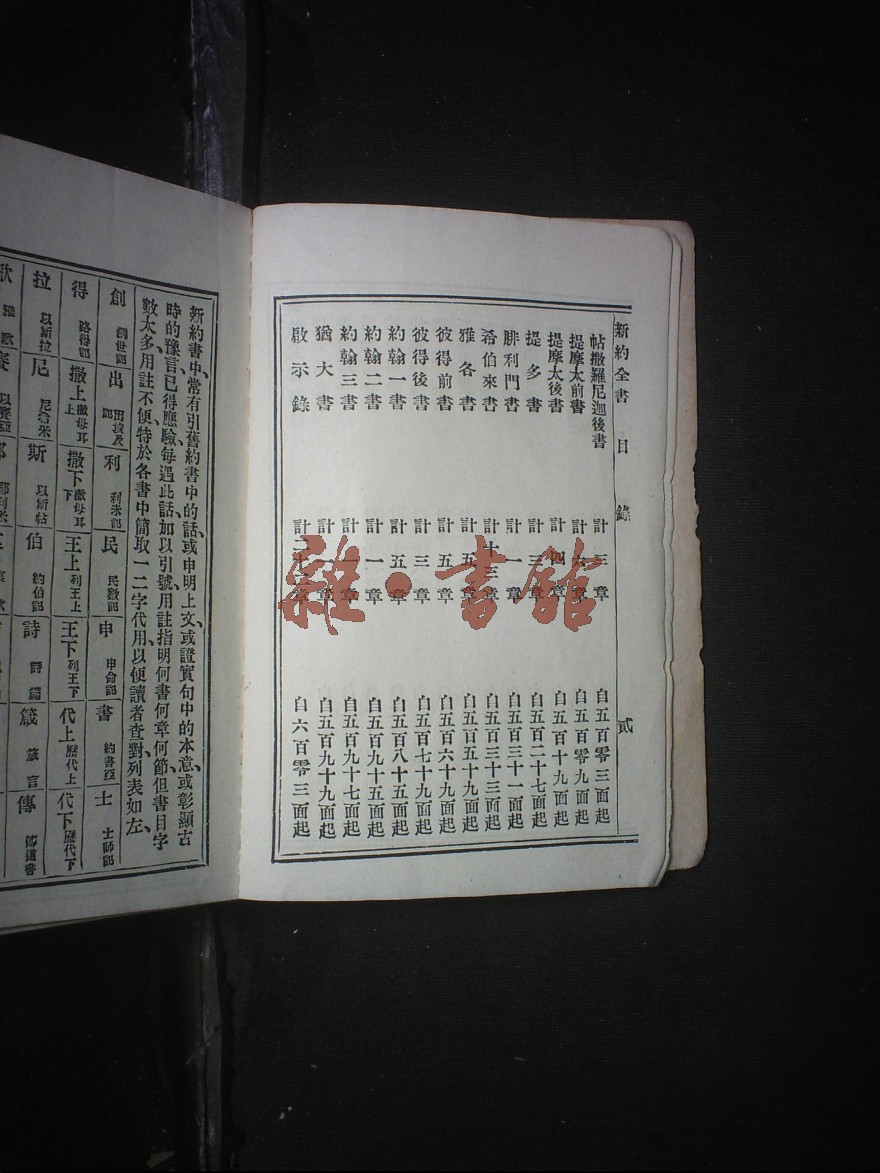 新約全書 目錄 貳
帖撒羅尼迦後書 計三章 自五百零三面起
提摩太前書 計六章 自五百零九面起
提摩太後書 計四章 自五百十九面起
提多書 計三章 自五百二十七面起
腓利門書 計一章 自五百三十一面起
希伯來書 計十三章 自五百三十三面起
雅各書 計五章 自五百五十九面起
彼得前書 計五章 自五百六十九面起
彼得後書 計三章 自五百七十九面起
約翰一書 計五章 自五百八十五面起
約翰二書 計一章 自五百九十五面起
約翰三書 計一章 自五百九十七面起
猶大書 計一章 自五百九十九面起
啟示錄 計二十二章 自六百零三面起
雜·書館
新約書中、常有引舊約書中的話、或申明上文、或證實句中的本意、或彰顯古
時的豫言、已得應驗、每遇此話、加以引號、用註指明何書何章何節、但書目字
數太多、用註不便、特於各書中簡取一二字代用、以便讀者查對、列表如左、
創 創世記 出 出埃及記 利 利未記 民 民數記 申 申命記 書 約書亞 士 士師記
得 路得記 撒上 撒母耳上 撒下 撒母耳下 王上 列王上 王下 列王下 代上 歷代上 代下 歷代下
拉 以斯拉 尼 尼希米 斯 以斯帖 伯 約伯記 詩 詩篇 箴 箴言 傳 傳道書
歌 雅歌 賽 以賽亞